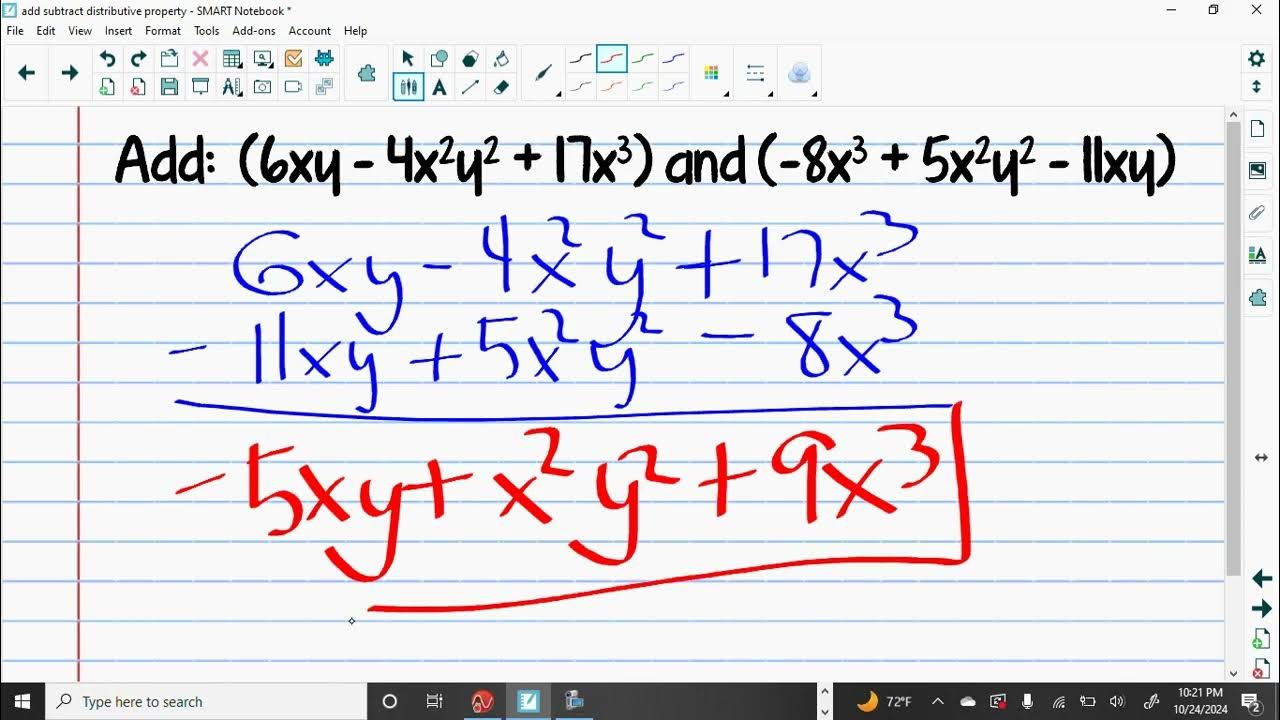 add subtract distributive property - SMART Notebook *
File Edit View Insert Format Tools Add-ons Account Help
Add: (6xy - 4x²y² + 17x³) and (-8x³ + 5x²y² - 11xy)
6xy - 4x²y² + 17x³
- 11xy + 5x²y² - 8x³
- 5xy + x²y² + 9x³
Type here to search
72°F
10:21 PM
10/24/2024
2